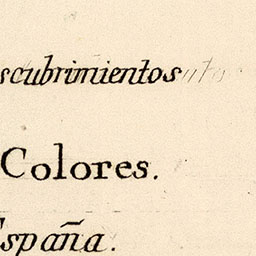 scubrimientos
Colores.
España.